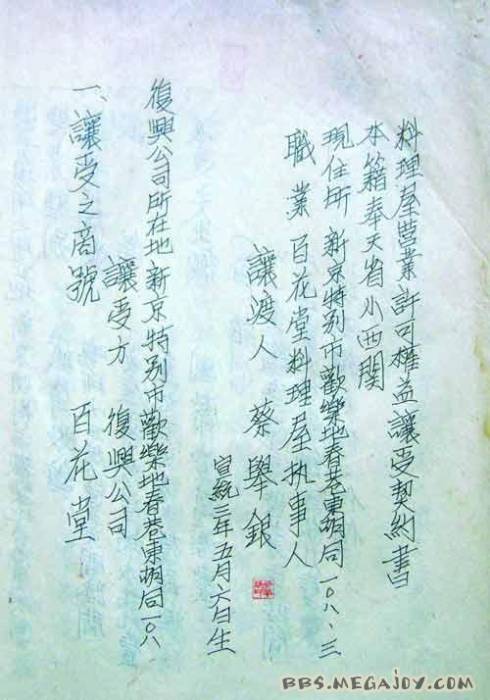 料理屋营業許可權益讓受契約書
本籍奉天省小西関
現住所 新京特别市歡樂地春巷東胡同一〇八、三
職業百花堂料理屋执事人
讓渡人 蔡舉銀
宣統三年五月六日生
復興公司所在地新京特别市歡樂地春巷東胡同一〇八
讓受方 復興公司
一、讓受之商號 百花堂
BBS.MEGAJOY.COM